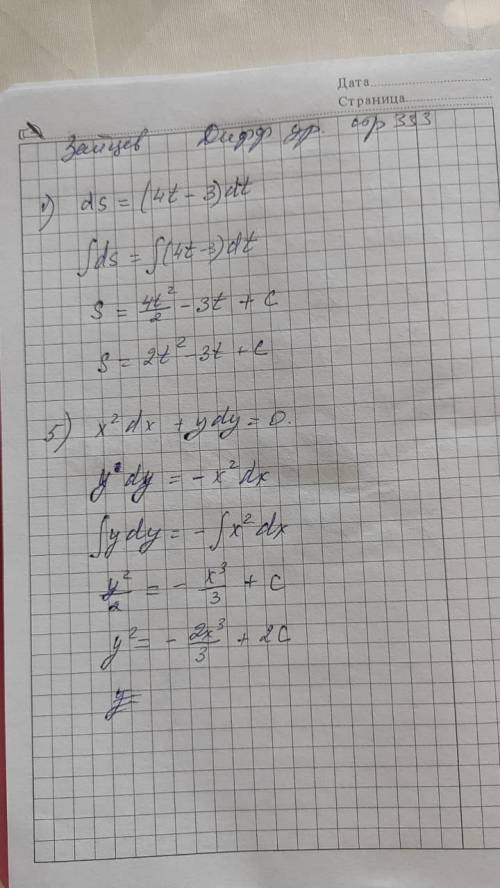 Дата
Страница
Зайцев Дифф ур. стр 393
1) ds = (4t - 3)dt
∫ds = ∫(4t-3)dt
s = 4t²/2 - 3t + C
s = 2t² - 3t + C
5) x²dx + ydy = 0.
y dy = - x²dx
∫ydy = - ∫x²dx
y²/2 = - x³/3 + C
y² = - 2x³/3 + 2C
y